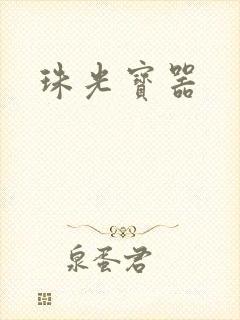 珠光寶器
泉蛋君